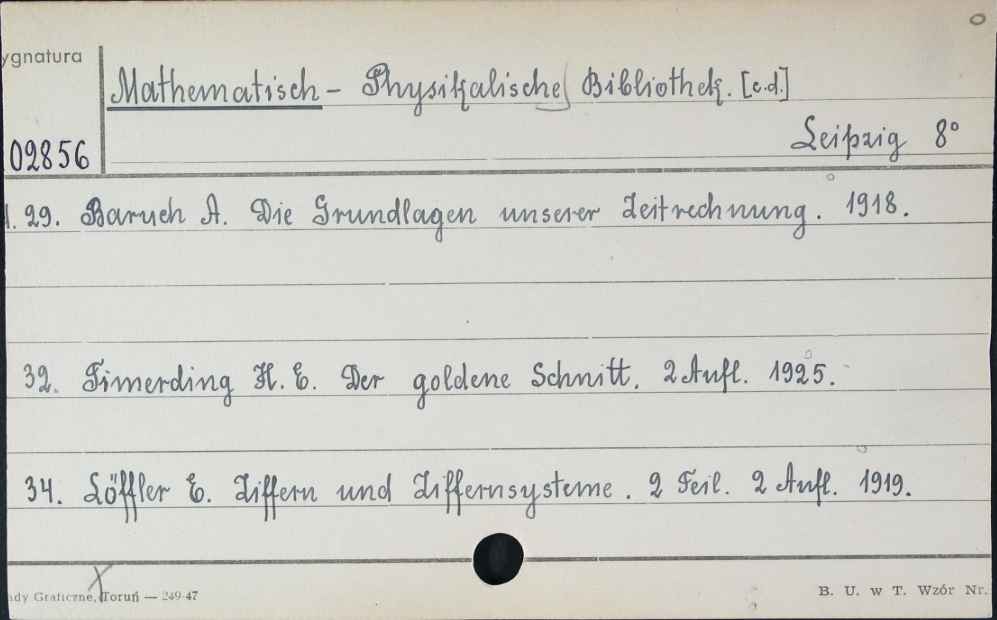 ygnatura
Mathematisch - Physikalische Bibliothek. [c.d.]
Leipzig 8°
02856
29. Baruch A. Die Grundlagen unserer Zeitrechnung. 1918.
32. Timerding H. E. Der goldene Schnitt. 2 Aufl. 1925.
34. Löffler E. Ziffern und Ziffernsysteme. 2 Teil. 2 Aufl. 1919.
ady Graficzne, Toruń — 249-47
B. U. w T. Wzór Nr.